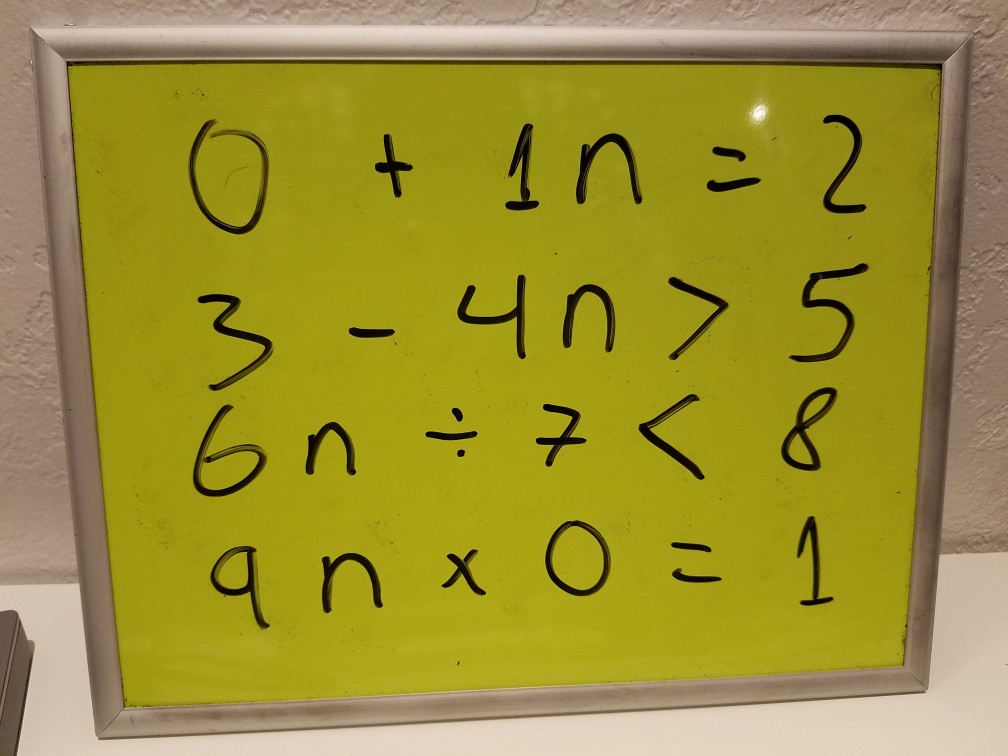 0 + 1n = 2
3 - 4n > 5
6n ÷ 7 < 8
9n × 0 = 1